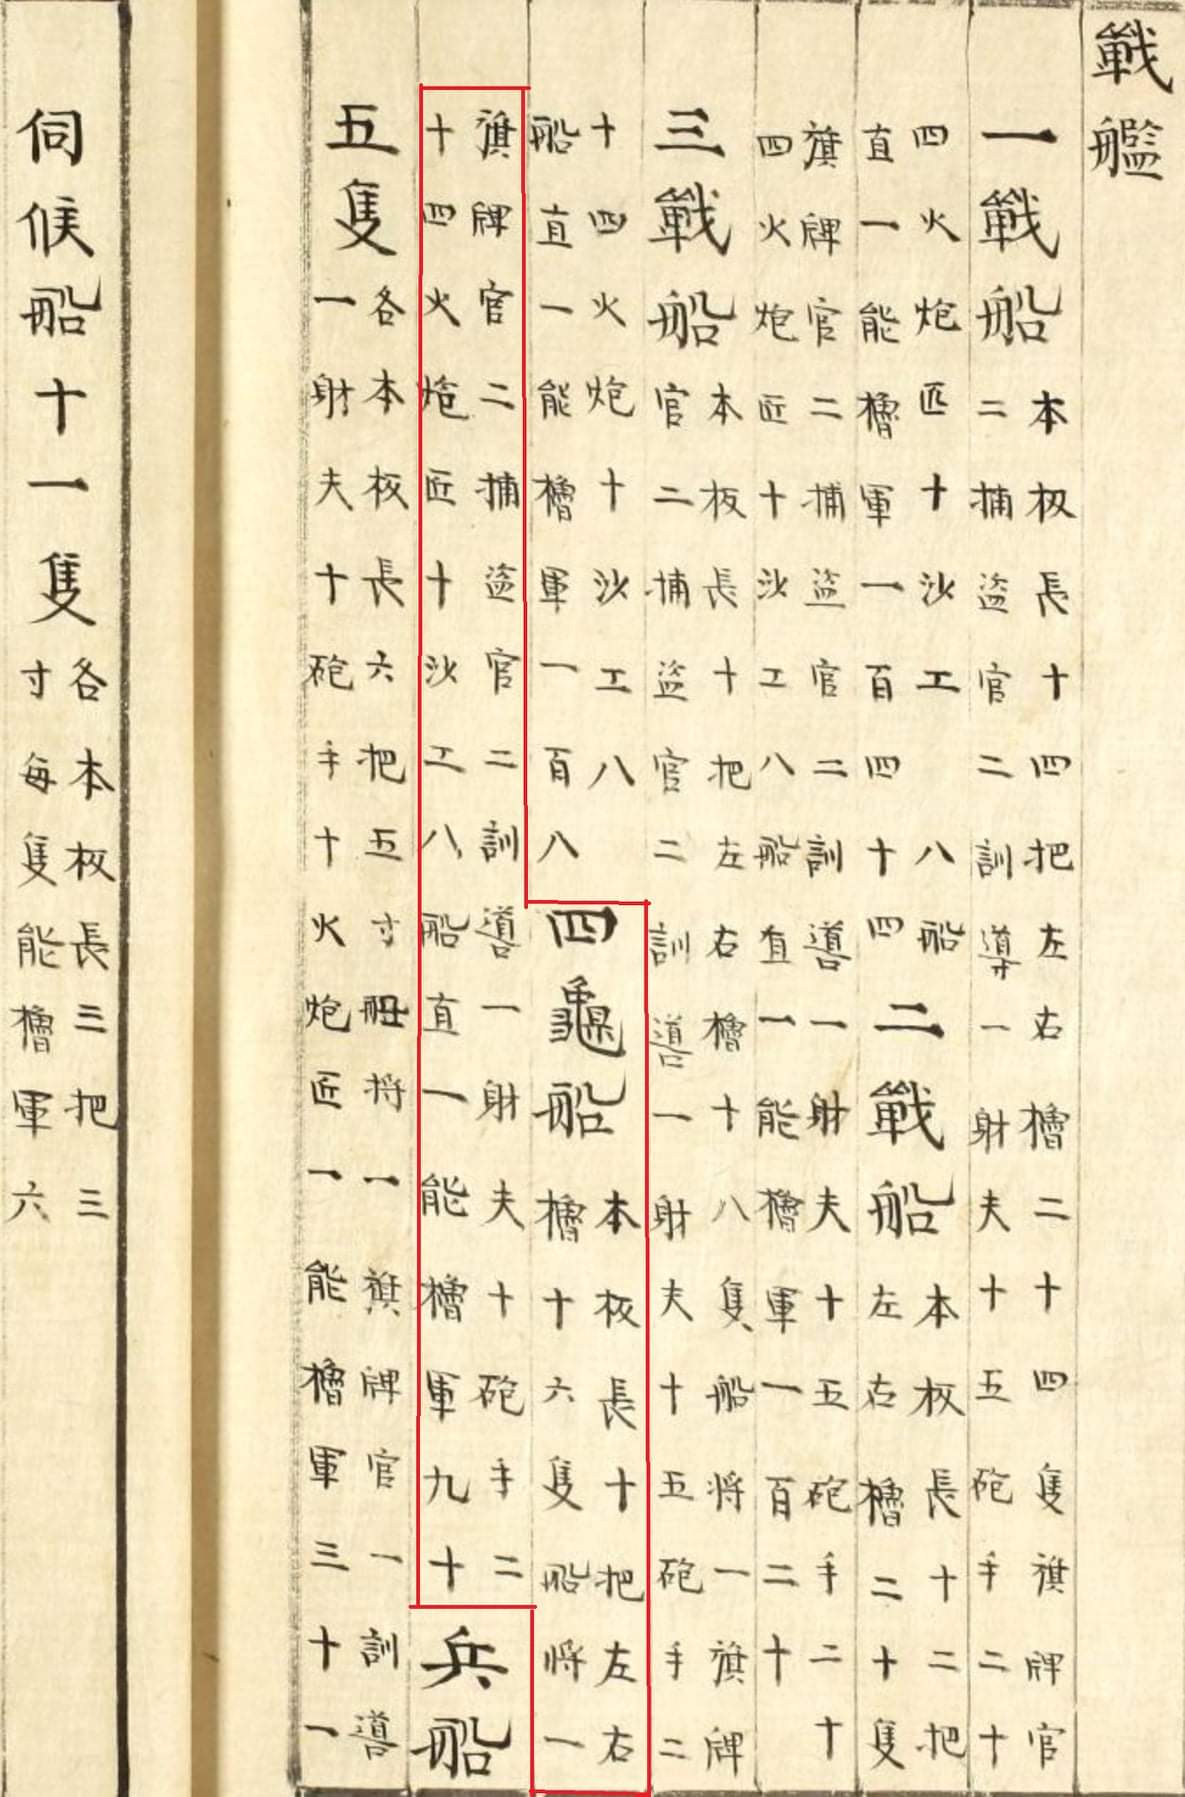 戰艦
一戰船
本板長十四把左右櫓二十四隻旗牌官
二捕盜官二訓導一射夫十五砲手二十
四火炮匠十沙工八船
直一能櫓軍一百四十四
二戰船
本板長十二把
左右櫓二十隻
旗牌官二捕盜官二訓導一射夫十五砲手二十
四火炮匠十沙工八船直一能櫓軍一百二十
三戰船
本板長十把左右櫓十八隻船將一旗牌
官二捕盜官二訓導一射夫十五砲手二
十四火炮十沙工八
船直一能櫓軍一百八
四龜船
本板長十把左右
櫓十六隻船將一
旗牌官二捕盜官二訓導一射夫十砲手二
十四火炮匠十沙工八船直一能櫓軍九十
兵船
五隻
各本板長六把五寸船將一旗牌官一訓導
一射夫十砲手十火炮匠一能櫓軍三十一
伺候船十一隻
各本板長三把三
寸每隻能櫓軍六